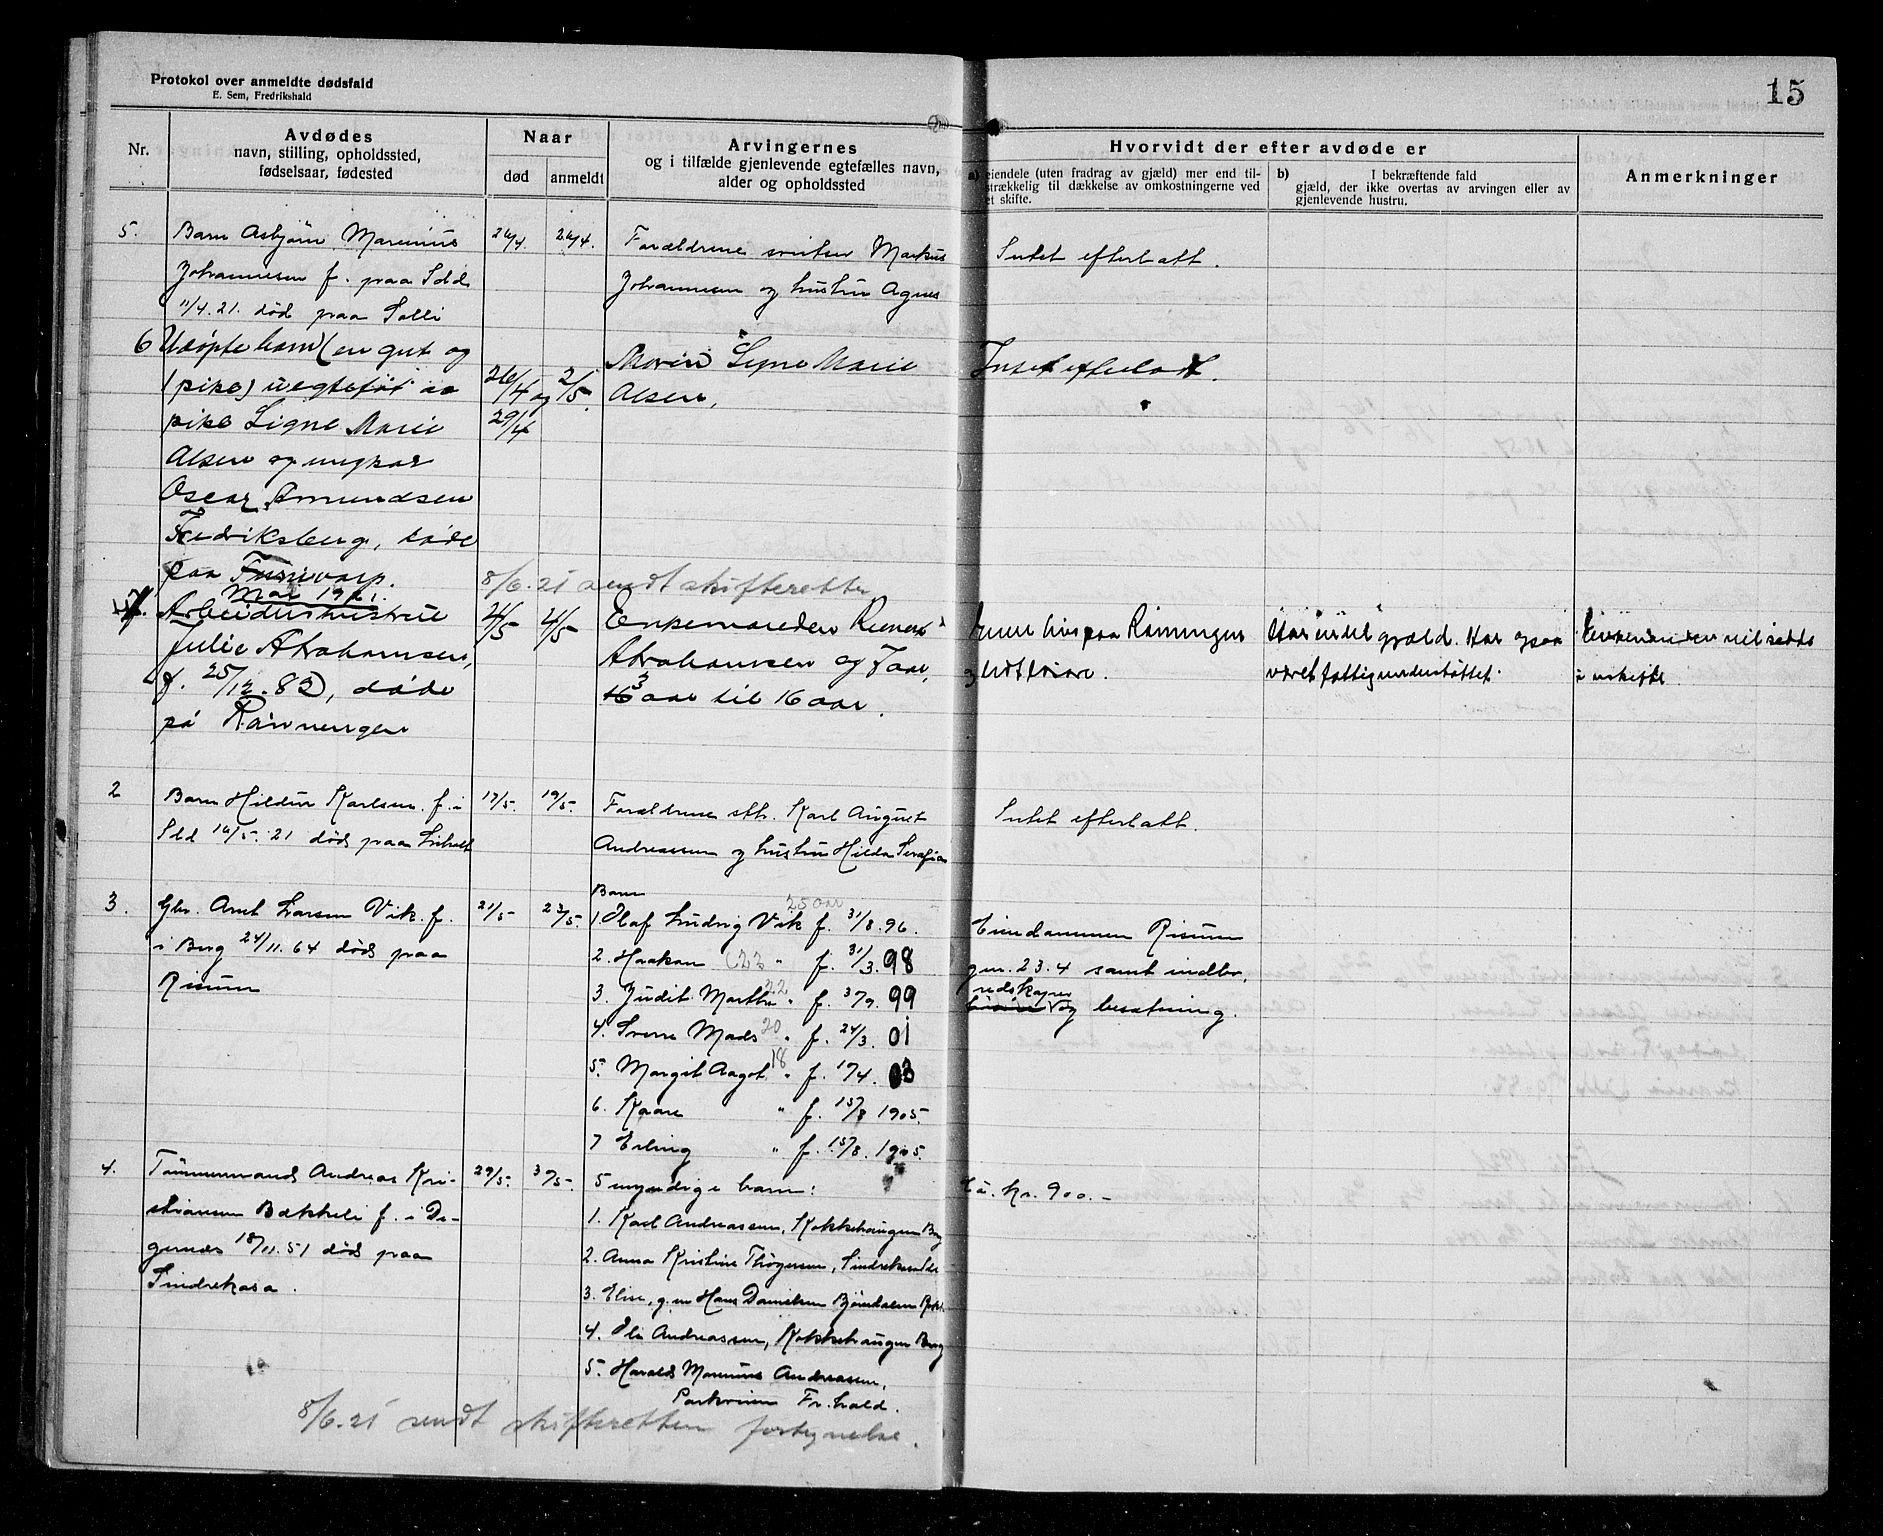 Protokol over anmeldte dødsfald
E. Sem, Fredrikshald
15
Nr.
Avdødes
navn, stilling, opholdssted,
fødselsaar, fødested
Naar
død
anmeldt
Arvingernes
og i tilfælde gjenlevende egtefælles navn,
alder og opholdssted
Hvorvidt der efter avdøde er
a) eiendele (uten fradrag av gjæld) mer end til-
strækkelig til dækkelse av omkostningerne ved
et skifte.
b) I bekræftende fald
gjæld, der ikke overtas av arvingen eller av
gjenlevende hustru.
Anmerkninger
5. Barn Asbjørn Marenius
Johannesen f. paa Idd
11/4.21. død paa Solli
26/4. 26/4.
Forældrene Markus
Johannesen og hustru Agnes
Intet efterlatt.
6 Udøpte barn (en gut og
1 pike) uegtefødt av
pike Signe Marie
Olsen og ungkar
Oscar Amundsen
Fredriksberg, døde
paa
26/4 og 29/4
2/5.
Moren Signe Marie
Olsen,
Intet efterladt.
8/6.21 sendt skifteretten
Mai 1921.
1. Arbeiderhustru
Julie Abrahamsen,
f. 25/12.82, døde
på Rønningen
4/5 4/5
Enkemanden
Abrahamsen og 7 aar,
3 aar til 16 aar.
hus paa Rønningen
og
Har endel gjæld. Har ogsaa
været fattigunderstøttet.
Enkemanden vil sidde
i uskifte.
2 Barn Hildur Karlsen f. i
Idd 16/5.21 død paa
17/5. 19/5.
Forældrene Karl August
Andreassen og hustru Hilda Serafia
Intet efterlatt.
3. Gbr. Arnt Larsen Vik f.
i Berg 24/11.64 død paa
Risum
21/5 23/5.
Barn
1. Olaf Ludvig Vik f. 31/8.96. 25 aar
2. Haakon (22 " f. 31/3.98
3. Judit Martha 22 " f. 3/9.99
4. Sverre Mads 20 " f. 24/3.01
5. Margit Aagot 18 " f. 1/4.03
6. Kaare " f. 15/8 1905.
7 Erling " f. 15/8.1905.
Eiendommen Risum
gnr. 23.4 samt indbo,
redskaper
og besætning.
4. Tømmermand Andreas Kri-
stiansen Bækkeli f. i De-
gernes 18/11.51 død paa
Sindrekasa.
29/5. 3/5.
5 myndige barn:
1. Karl Andreassen, Kokkehaugen Berg
2. Anna Kristine Thøgersen,
3. Elise, g.m Hans Danielsen Bjørndalen
4. Andreassen, Kokkehaugen Berg
5. Harald Marenius Andreassen,
Parkveien Fr.hald.
Ca. kr. 900.-
8/6.21 sendt skifteretten fortegnelse.